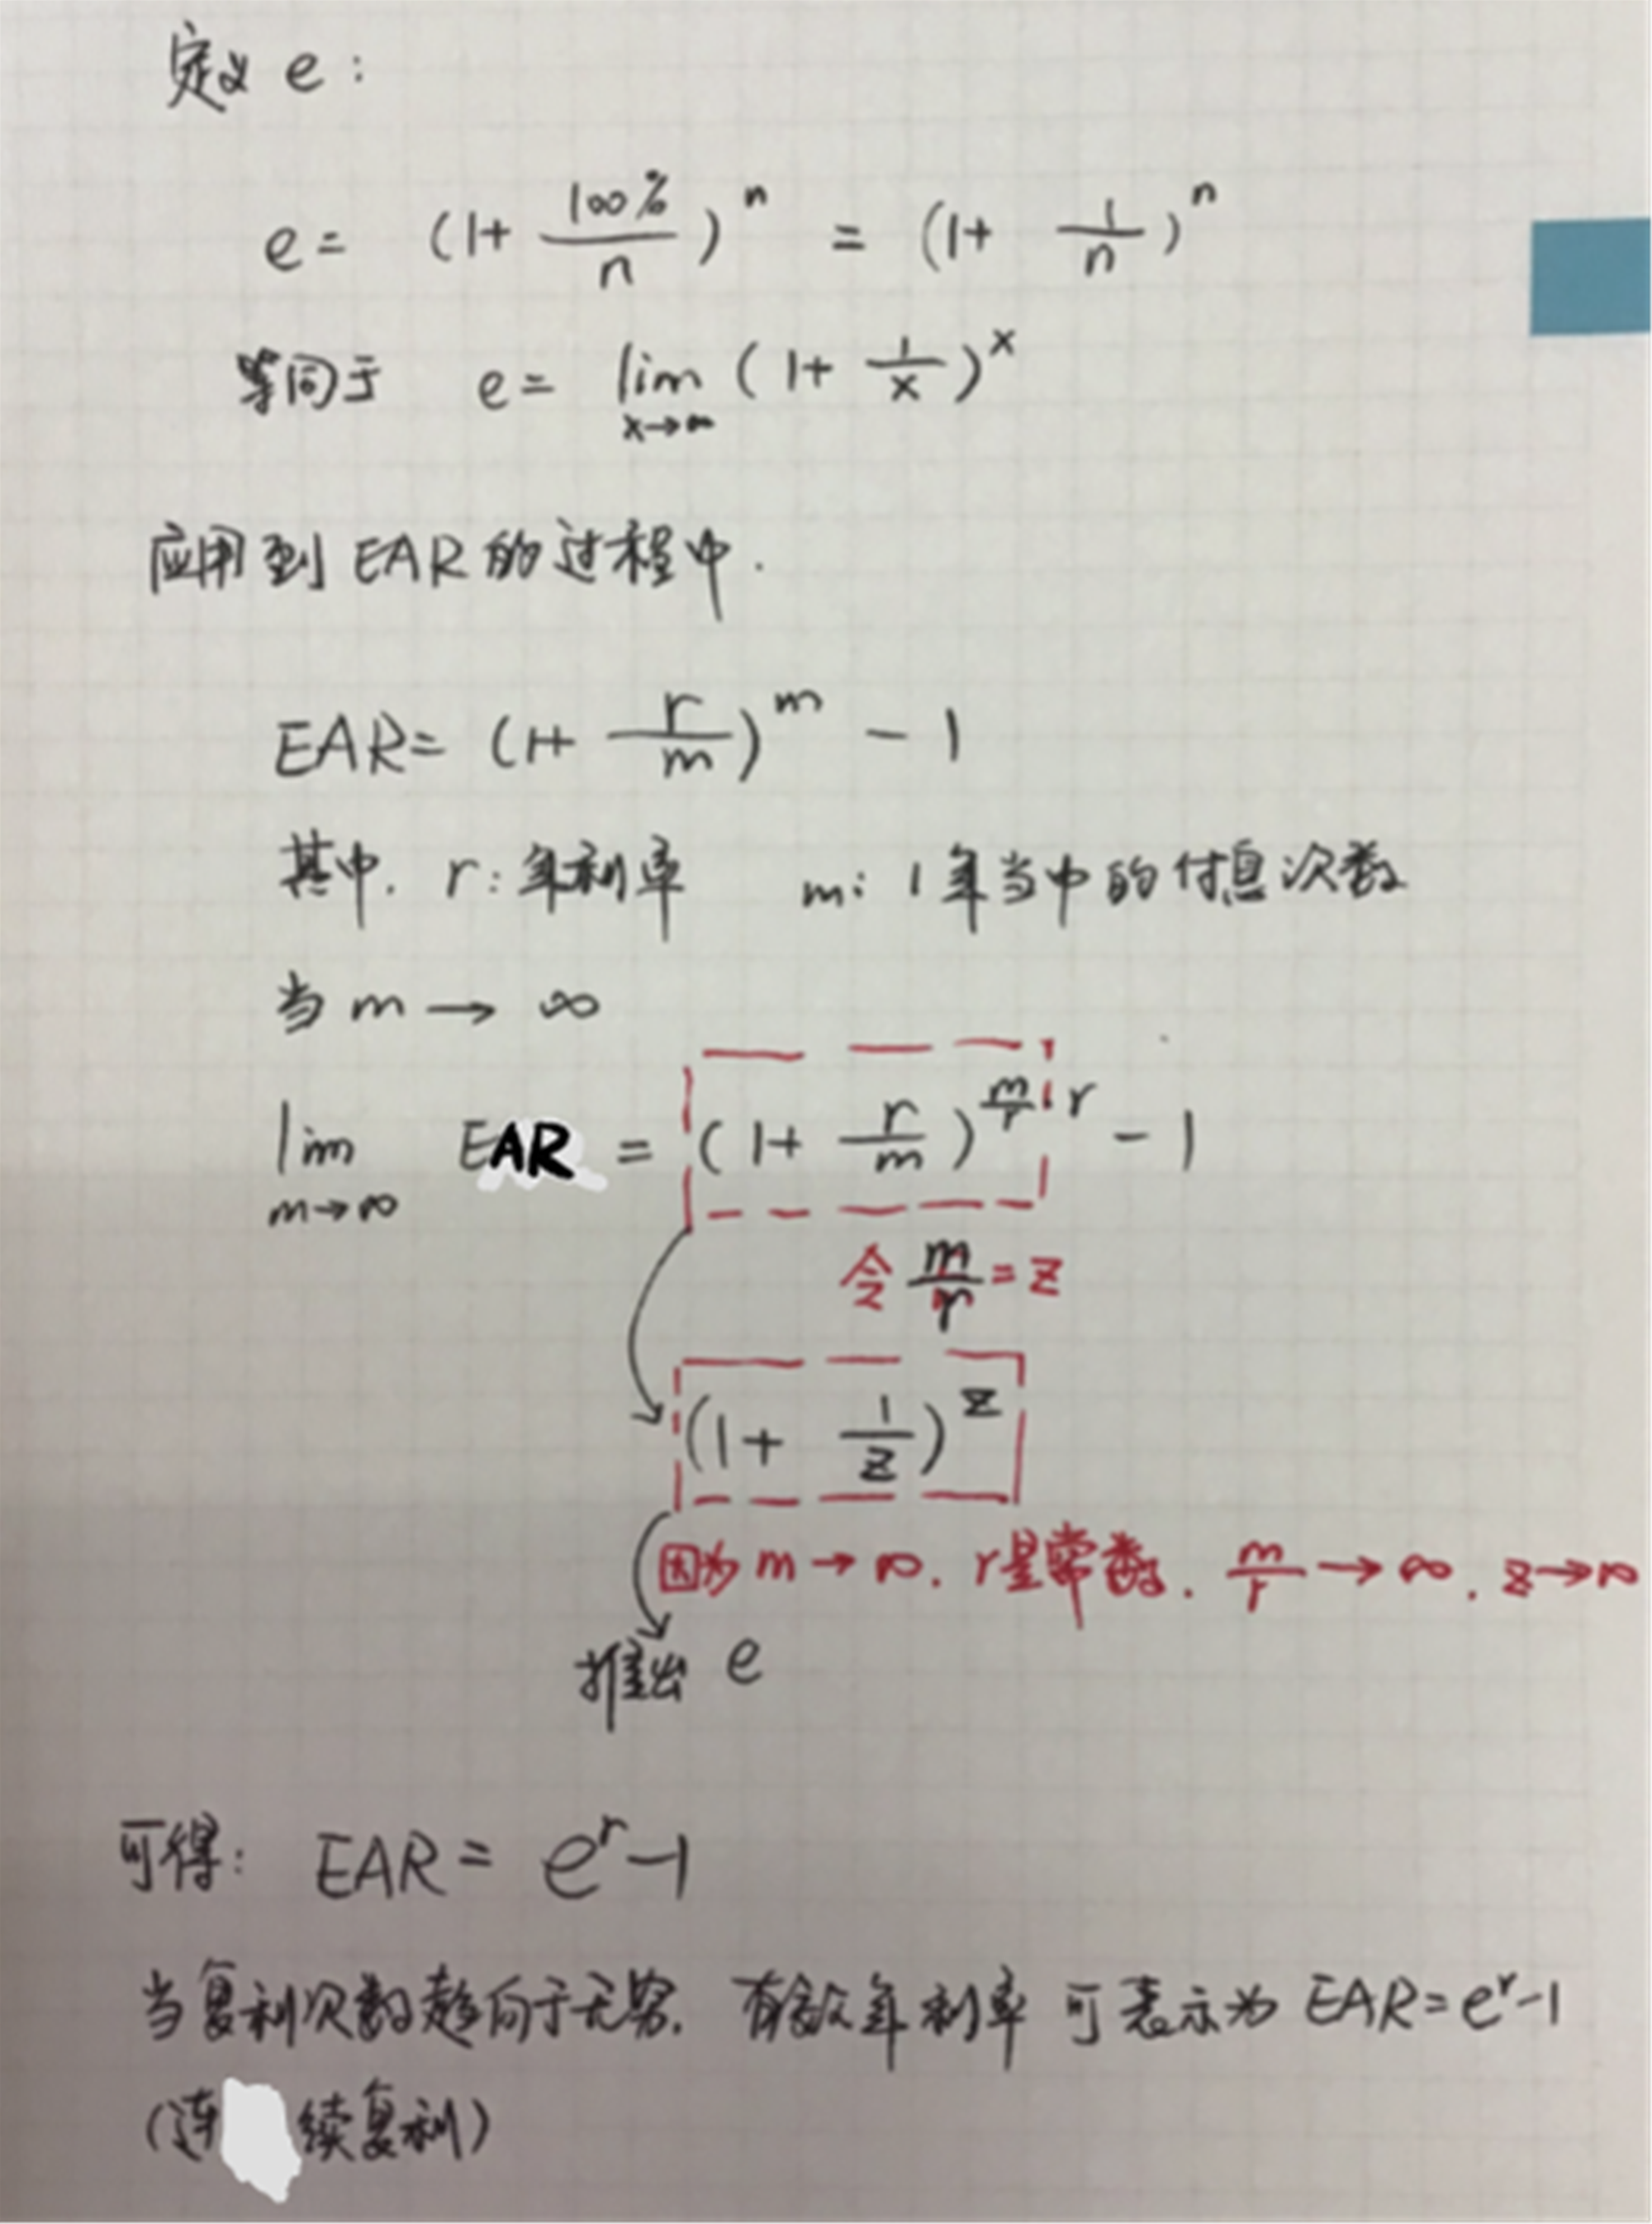 定义 e:
e = (1+ 100%/n)^n = (1+ 1/n)^n
等同于 e = lim x→∞ (1+ 1/x)^x
应用到 EAR 的过程中.
EAR = (1+ r/m)^m - 1
其中. r: 年利率 m: 1年当中的付息次数
当 m → ∞
lim m→∞ EAR = (1+ r/m)^(m/r · r) - 1
令 m/r = z
(1+ 1/z)^z
因为 m → ∞. r是常数. m/r → ∞. z → ∞
推出 e
可得: EAR = e^r - 1
当复利次数趋向于无穷. 有效年利率 可表示为 EAR = e^r - 1
(连续复利)